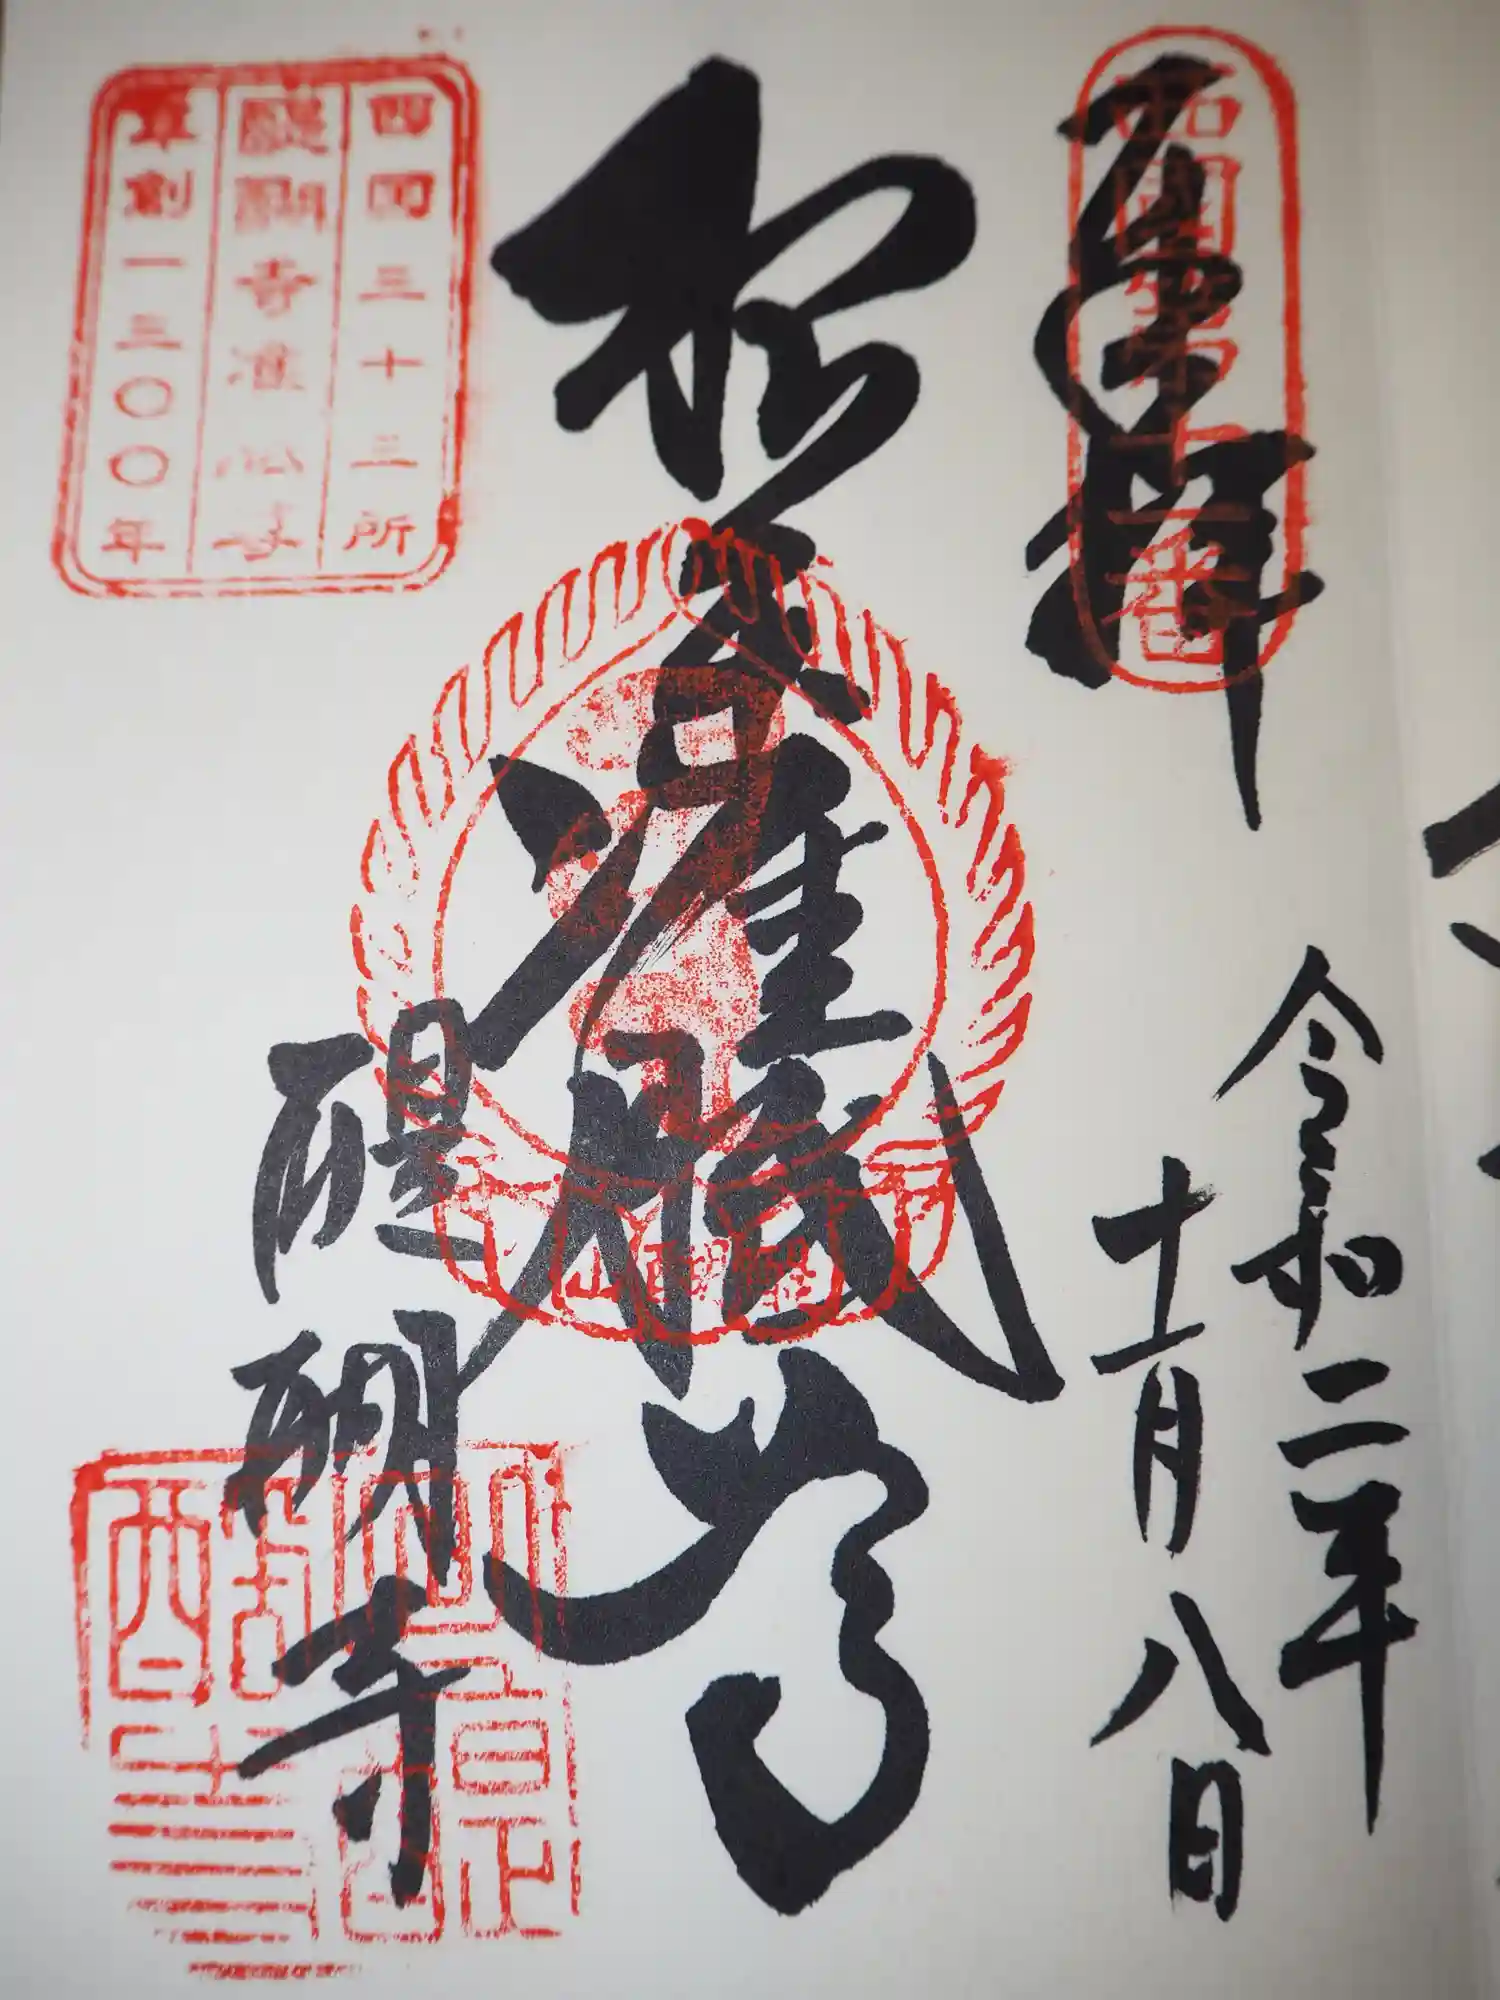 奉拝
西國第十一番
令和二年
十一月八日
根本准胝尊
醍醐山
醍醐寺
西国三十三所
醍醐寺准胝
草創一三〇〇年